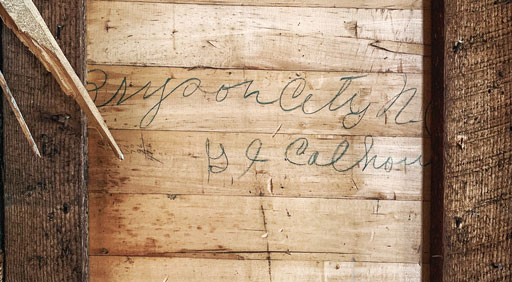 Bryson City N
G J Calhoun